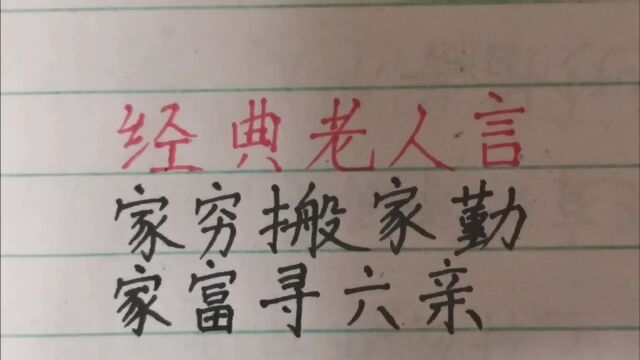 经典老人言
家穷搬家勤
家富寻六亲